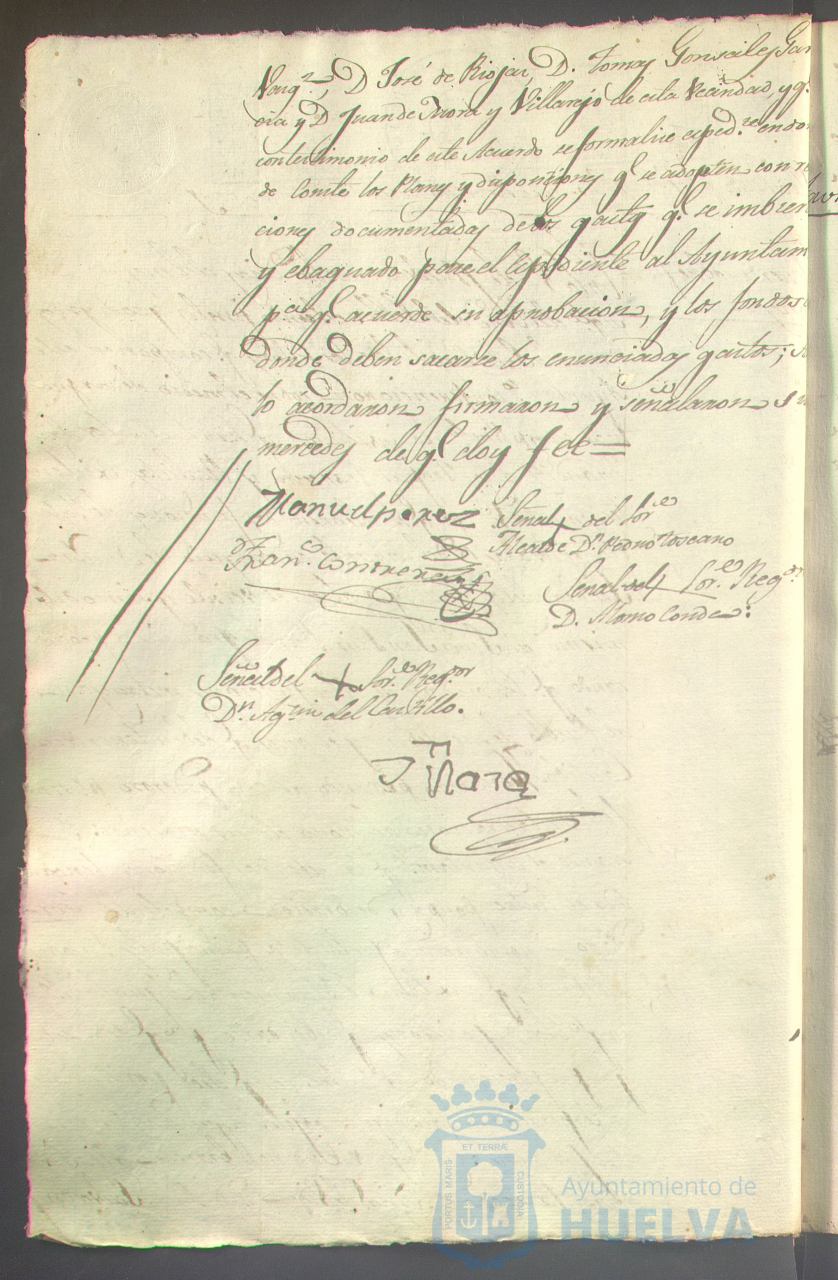 Vazq.z, D José de Rioja, D. Tomas Gonsales Gar
cia y D Juan de Mora y Villarejo de esta Vecindad, y q.
con testimonio de este Acuerdo se formalize exped.te en don
de conste los Planes y disposiciones q.e se adopten con re
ciones documentadas de los gastos q.e se imbier
y ebaquado pase el Expediente al Ayuntam
p.a q.e acuerde su aprobacion, y los fondos
donde deben sacarse los enunciados gastos;
lo acordaron firmaron y señalaron s
mercedes de q.e doy fee=
Manuel perez
Señal + del Sor.e
Alcalde D.n Pedro Toscano
Fran.co Contreras
Señal del + Sor.e Reg.or
D. Mano Conde.
Señal del + Sor.e Reg.or
D.n Ag.tin del Castillo.
ET TERRÆ
PORTUS MARIS
CUSTODIA
Ayuntamiento de
HUELVA